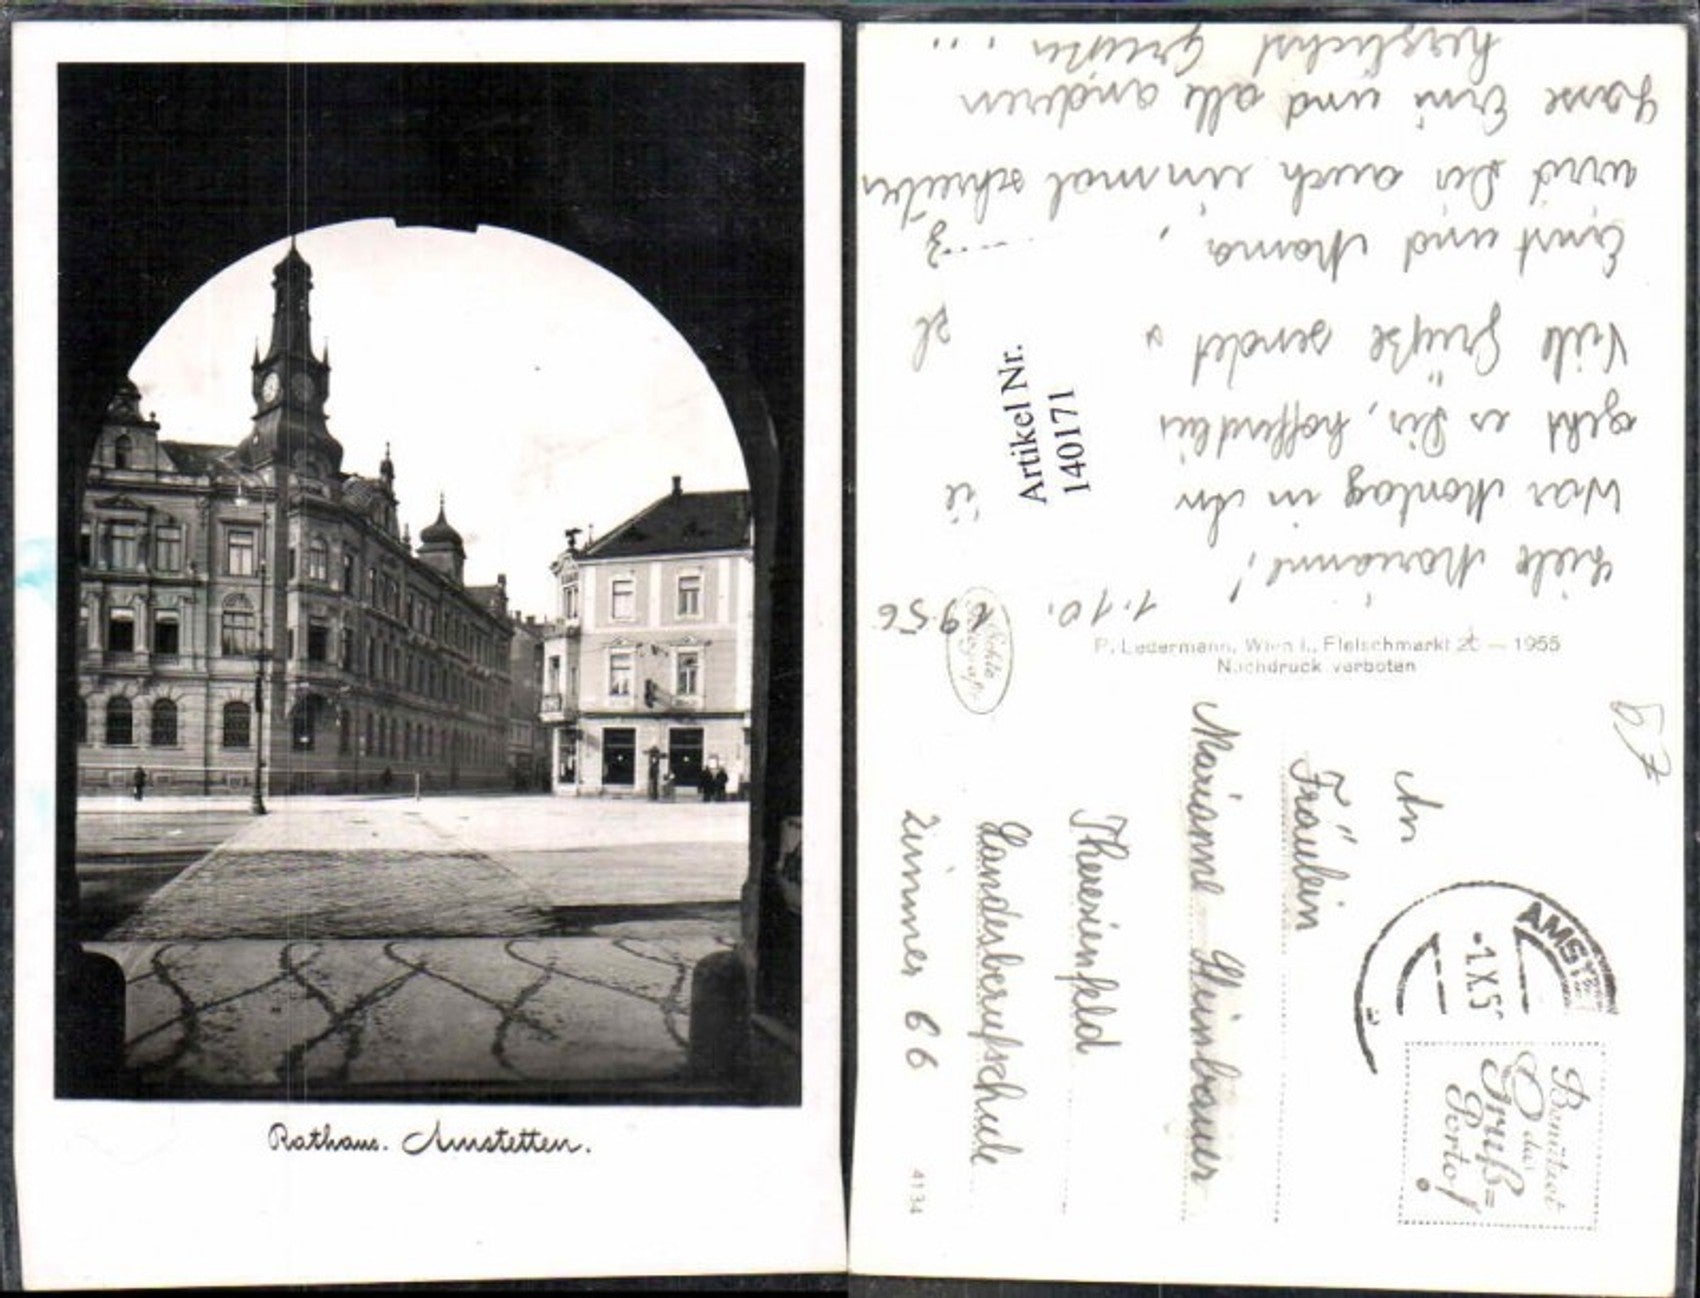 Rathaus. Amstetten.
1.10. 1956
Liebe Marianne!
War Montag in
geht es Dir, hoffentlich
Viele Grüße sendet
Ernst und Mama,
wird Dir auch einmal schreiben
Lasse Erni und alle anderen
herzlichst Grüßen ...
Artikel Nr.
140171
P. Ledermann, Wien I., Fleischmarkt 20 — 1955
Nachdruck verboten
AMST
-1.X.5
Benützet
das
Gruß=
Porto!
An
Fräulein
Marianne Steinbauer
Theresienfeld
Landesberufschule
Zimmer 66
4134